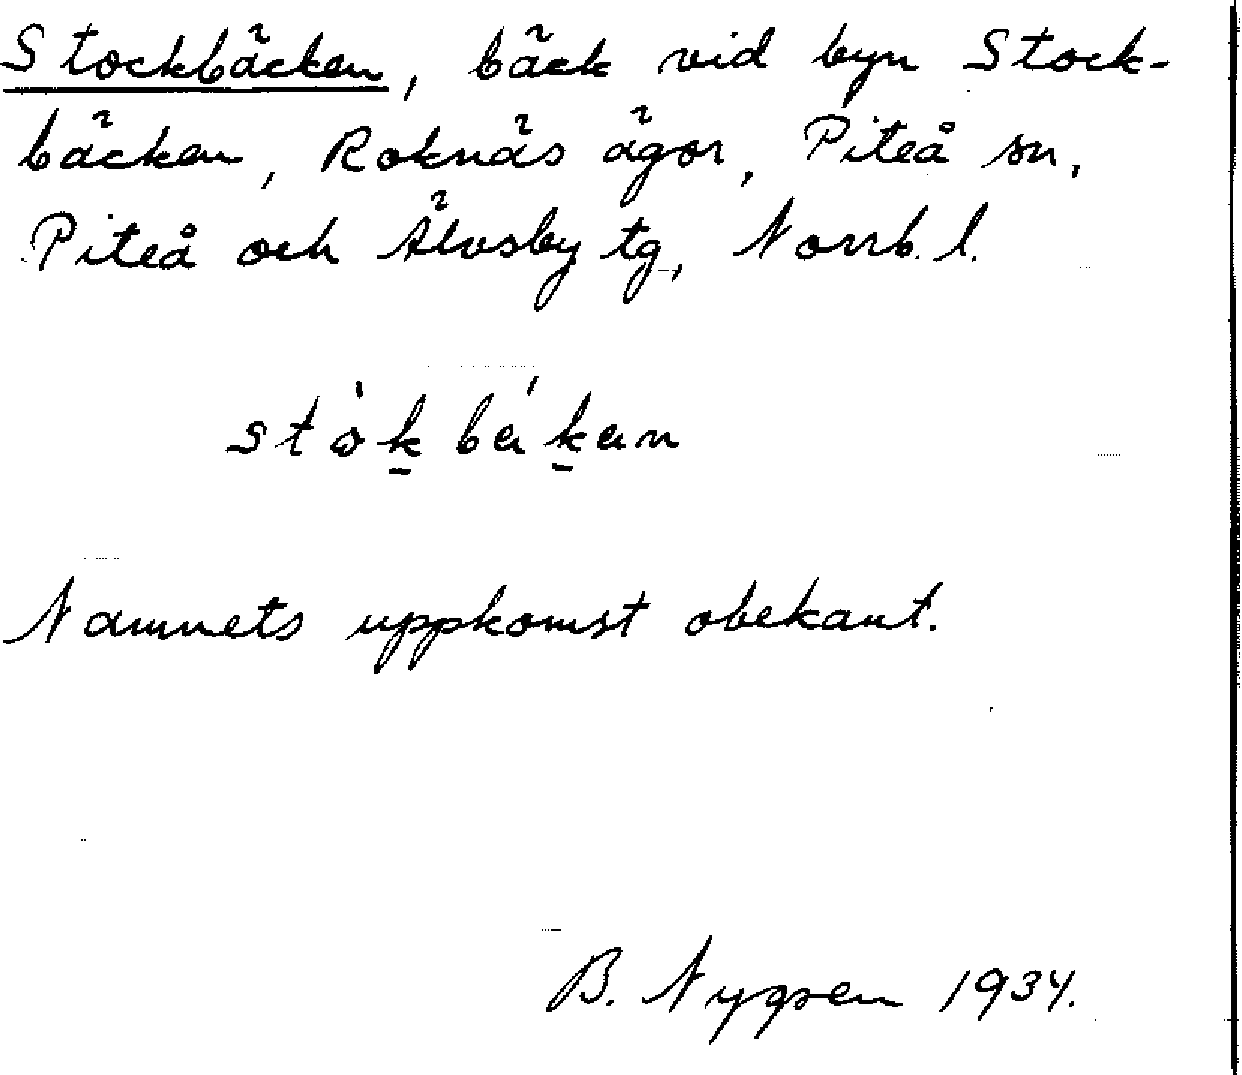 Stockbäcken, bäck vid byn Stock-
bäcken, Roknäs ägor, Piteå sn,
Piteå och Älvsby tg, Norrb. l.
stòk bákan
Namnets uppkomst obekant.
B. Nygren 1934.